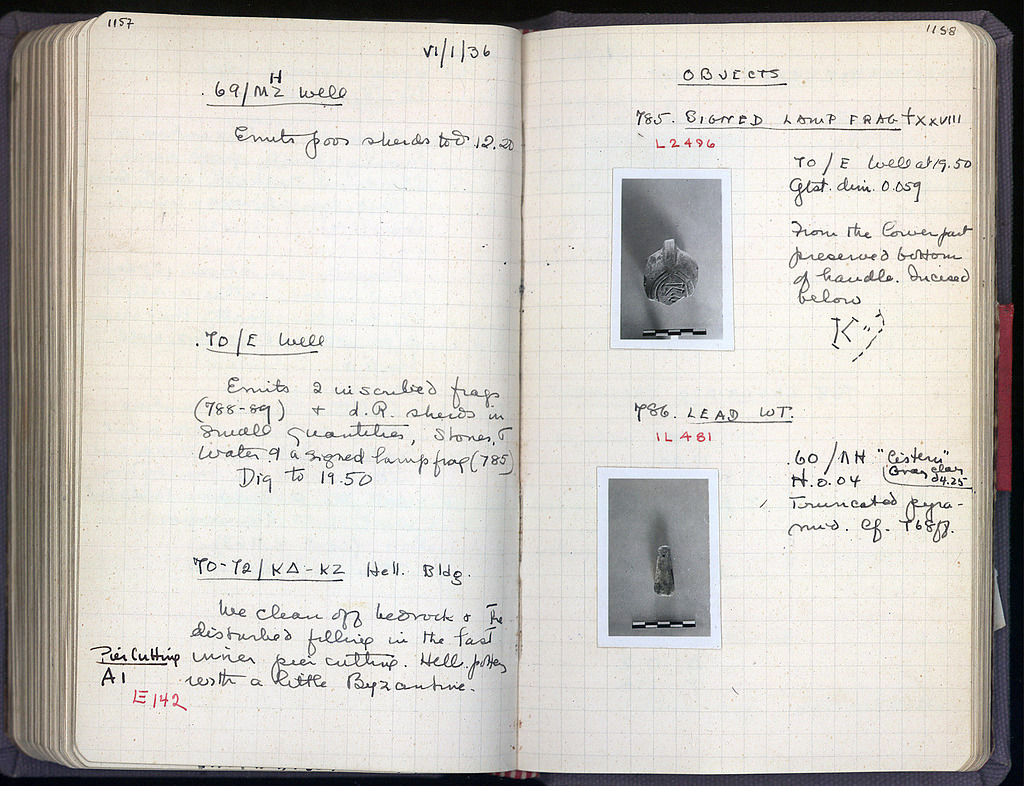 1157
VI/1/36
69/MZ well
H
Emits poor sherds to 12.20
70/E Well
Emits 2 inscribed frags
(788-89) + d.R. sherds in
small quantities, stones, &
water & a signed lamp frag (785)
Dig to 19.50
70-72/ΚΔ-ΚΖ Hell. Bldg.
We clean off bedrock & the
disturbed filling in the East
inner pier cutting. Hell. pottery
with a little Byzantine.
Pier Cutting
A1
E 142
1158
OBJECTS
785. SIGNED LAMP FRAG † XXVIII
L2496
70/E Well at 19.50
Gtst. dim. 0.059
From the lower part
preserved bottom
of handle. Incised
below
K
786. LEAD WT.
IL 481
60/ΛΗ "Cistern"
Gray clay
24.25
H. 0.04
Truncated pyra-
mid. Cf. 768ff.